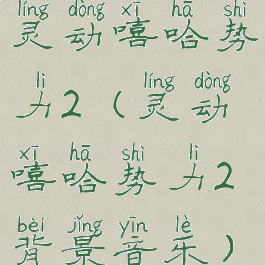 líng dòng xī hā shì
灵动嘻哈势
lì líng dòng
力2（灵动
xī hā shì lì
嘻哈势力2
bèi jǐng yīn lè
背景音乐）